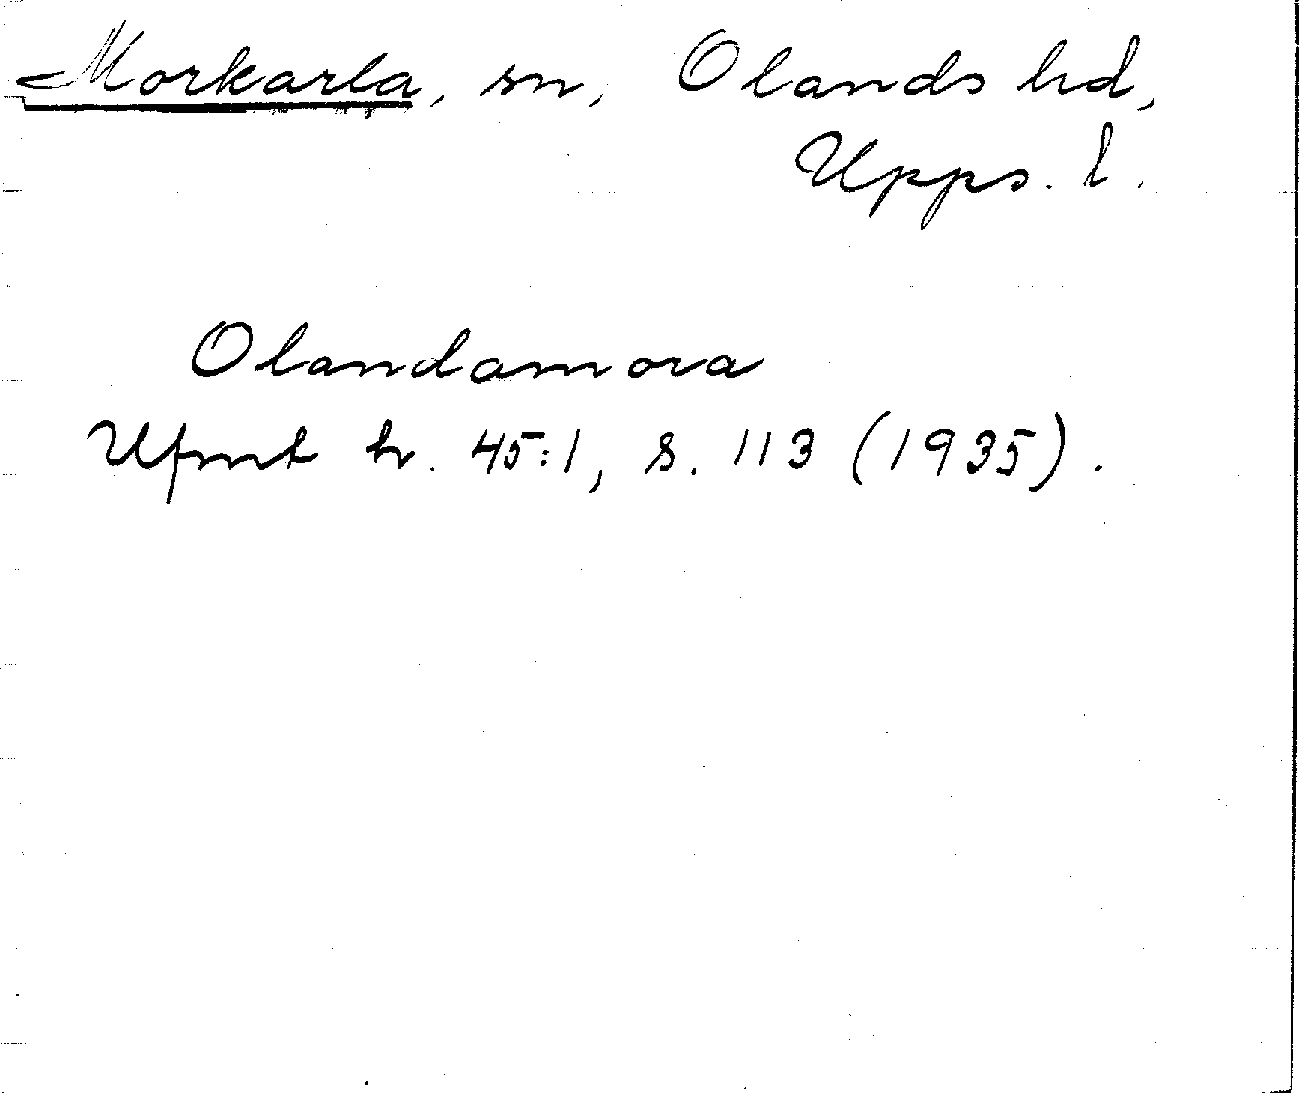 Morkarla, sn, Olands hd,
Upps. l.
Olandamora
Ufmt h. 45:1, s. 113 (1935).